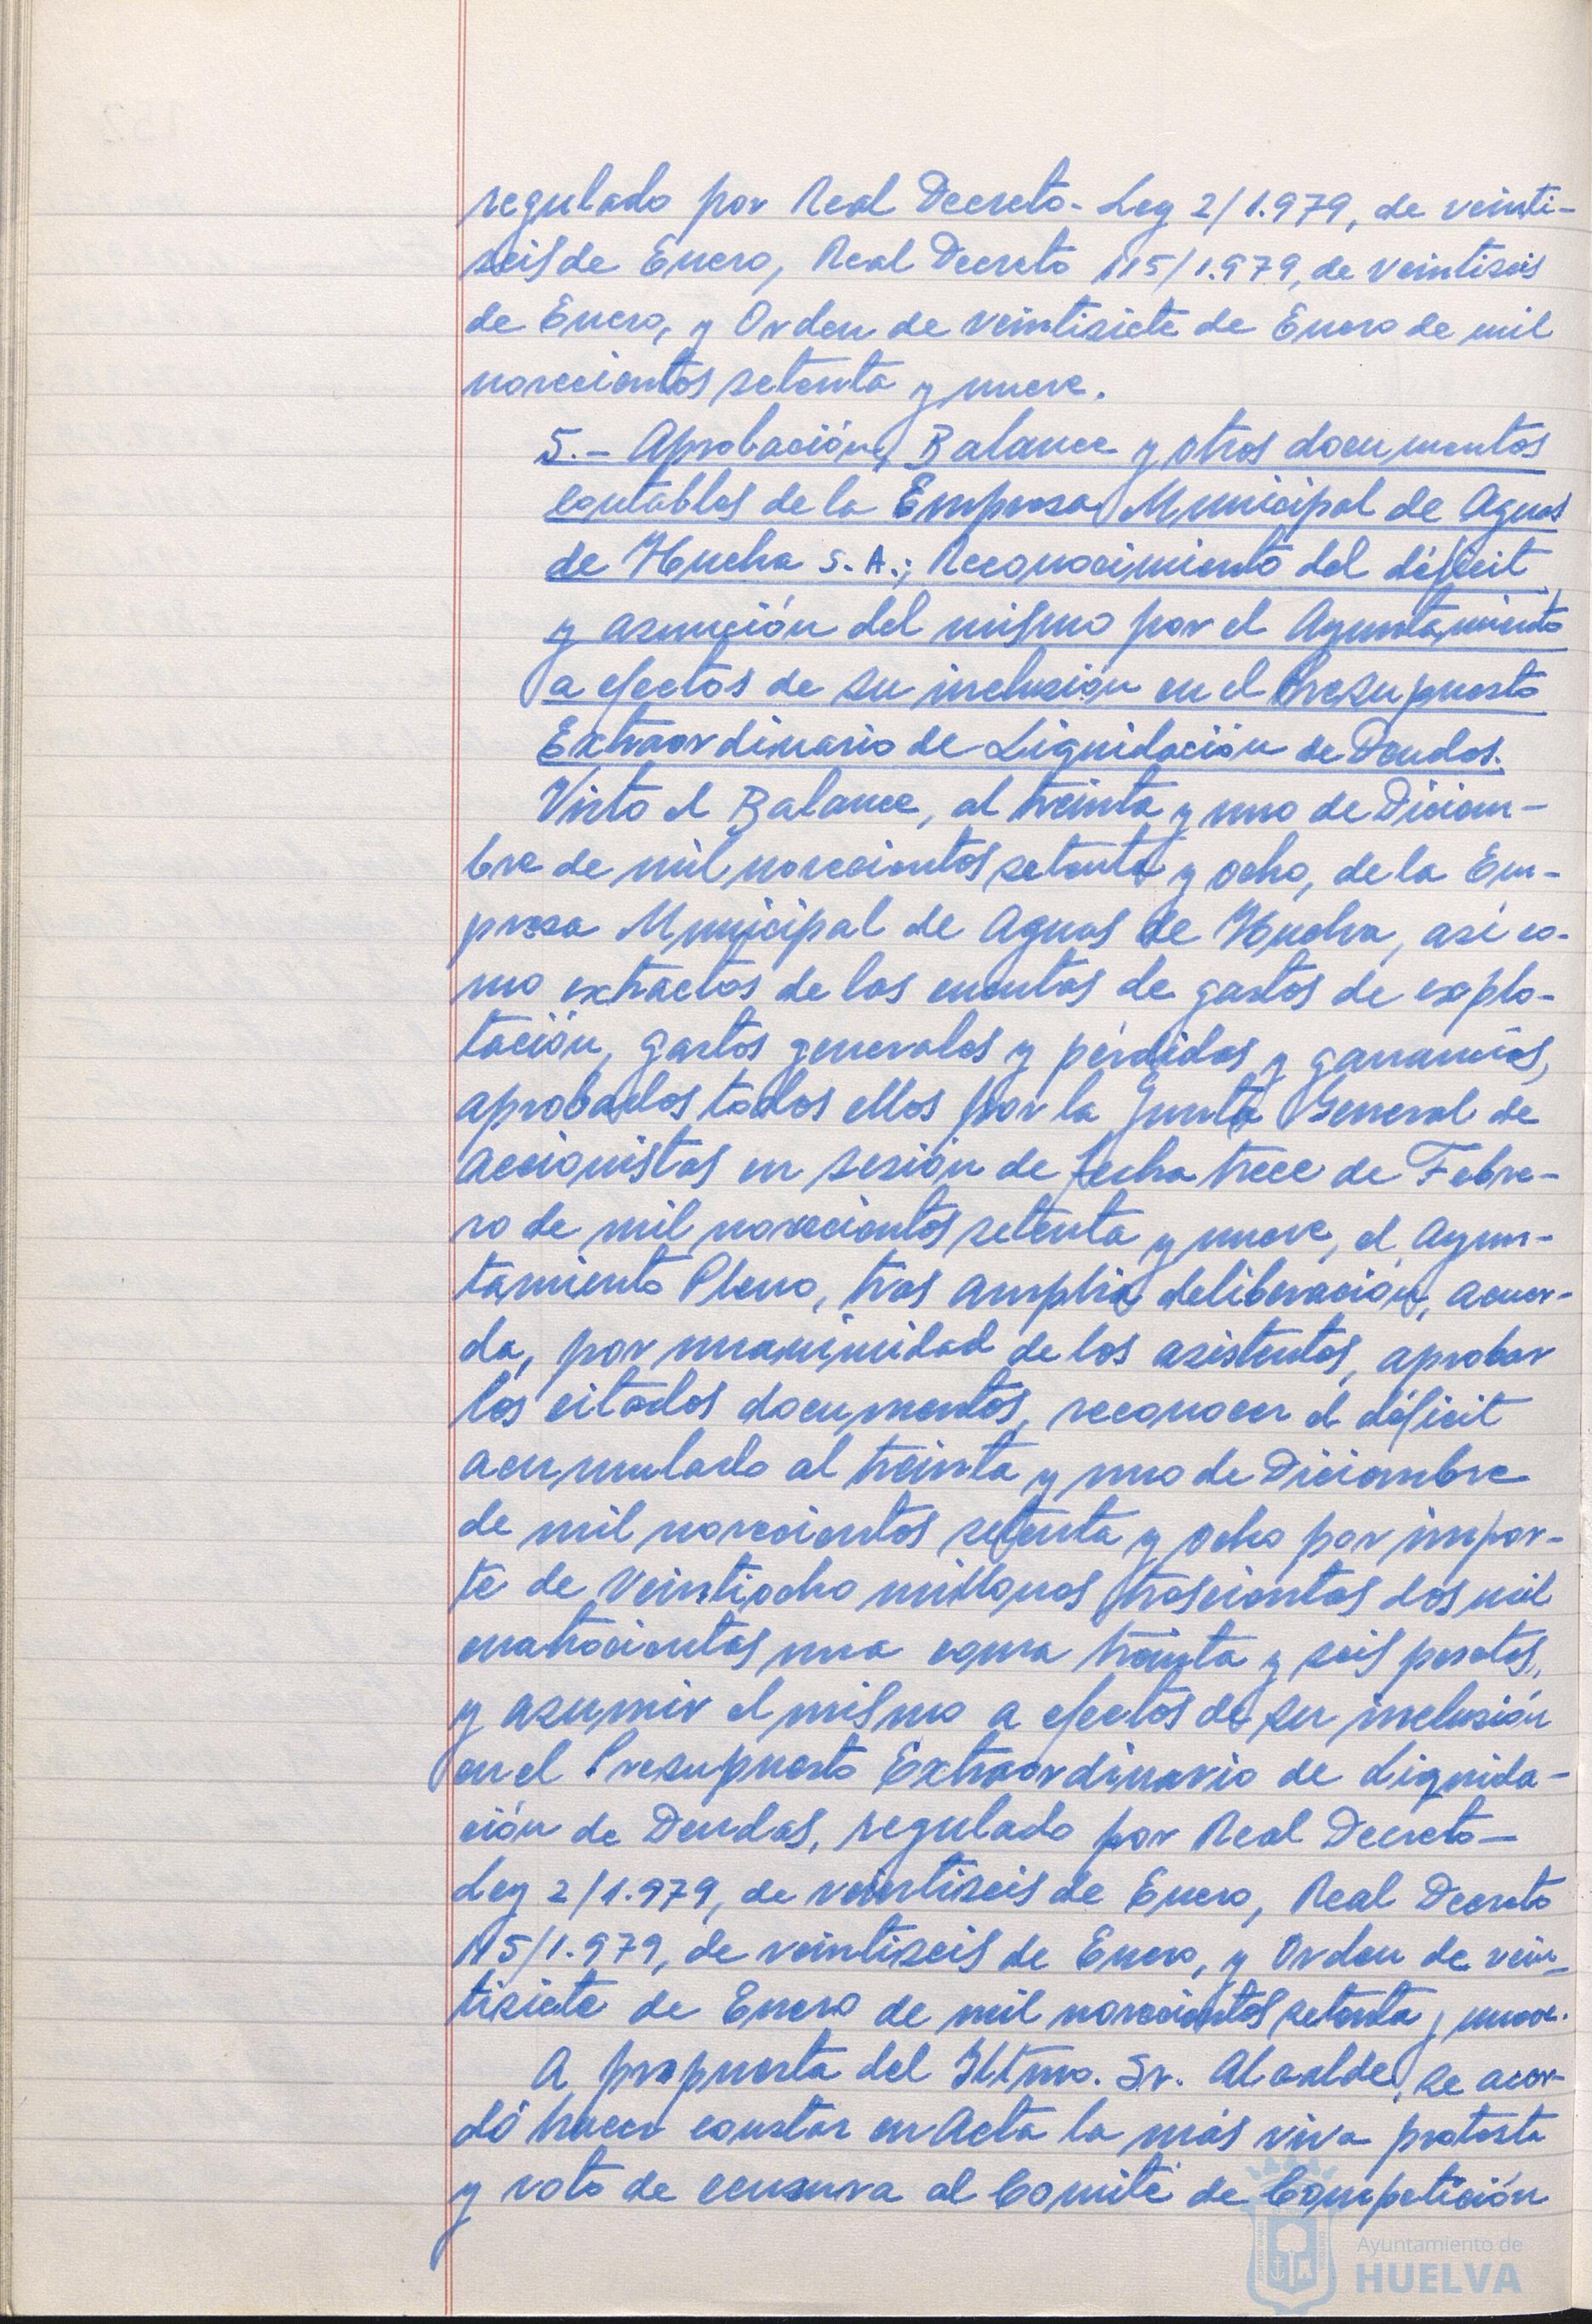 regulado por Real Decreto-Ley 2/1.979, de veinti-
seis de Enero, Real Decreto 115/1.979, de veintiseis
de Enero, y Orden de veintisiete de Enero de mil
novecientos setenta y nueve.
5.- Aprobación, Balance y otros documentos
contables de la Empresa Municipal de Aguas
de Huelva S.A.; Reconocimiento del déficit
y asunción del mismo por el Ayuntamiento
a efectos de su inclusión en el Presupuesto
Extraordinario de Liquidación de Deudas.
Visto el Balance, al treinta y uno de Diciem-
bre de mil novecientos setenta y ocho, de la Em-
presa Municipal de Aguas de Huelva, asi co-
mo extractos de las cuentas de gastos de explo-
tación, gastos generales y pérdidas y ganancias,
aprobados todos ellos por la Junta General de
accionistas en sesión de fecha trece de Febre-
ro de mil novecientos setenta y nueve, el Ayun-
tamiento Pleno, tras amplia deliberación, acuer-
da, por unanimidad de los asistentes, aprobar
los citados documentos, reconocer el déficit
acumulado al treinta y uno de Diciembre
de mil novecientos setenta y ocho por impor-
te de veintiocho millones trescientas dos mil
cuatrocientas una coma treinta y seis pesetas,
y asumir el mismo a efectos de su inclusión
en el Presupuesto Extraordinario de Liquida-
ción de Deudas, regulado por Real Decreto-
Ley 2/1.979, de veintiseis de Enero, Real Decreto
115/1.979, de veintiseis de Enero, y Orden de vein-
tisiete de Enero de mil novecientos setenta y nueve.
A propuesta del Iltmo. Sr. Alcalde, se acor-
dó hacer constar en Acta la más viva protesta
y voto de censura al Comité de Competición
Ayuntamiento de
HUELVA